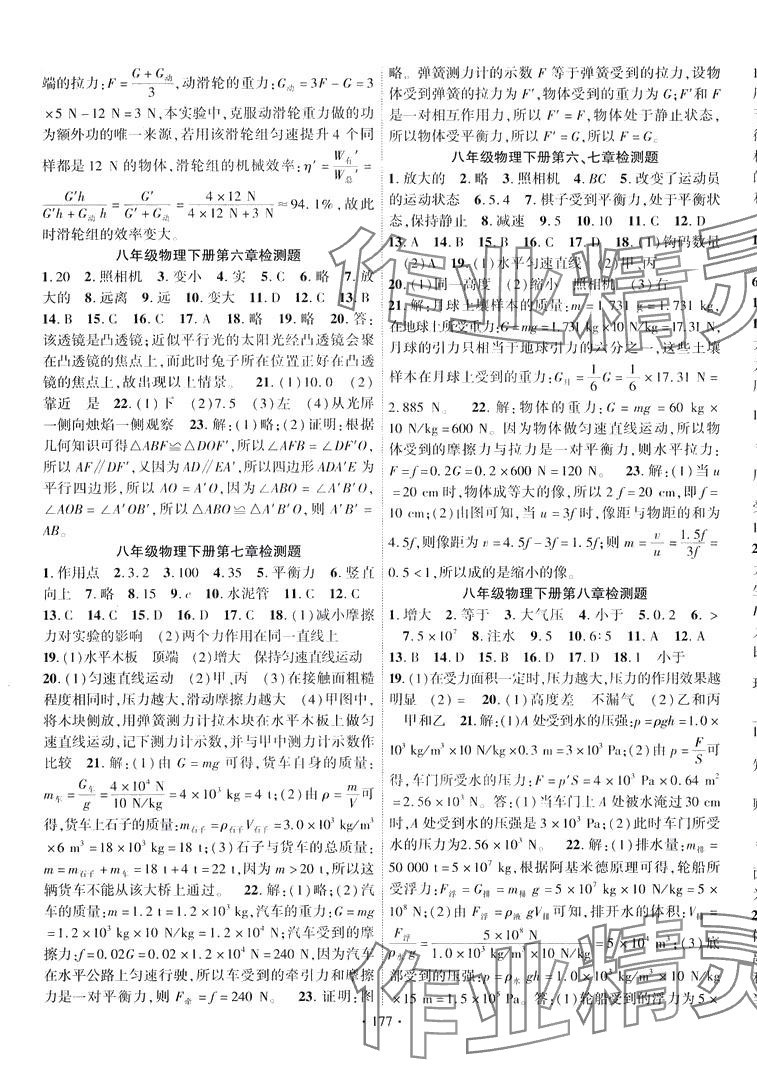 端的拉力:F=(G+G动)/3,动滑轮的重力:G动=3F-G=3
×5 N-12 N=3 N,本实验中,克服动滑轮重力做的功
为额外功的唯一来源,若用该滑轮组匀速提升 4 个同
样都是 12 N的物体,滑轮组的机械效率:η′=W有′/W总′=
G′h/(G′h+G动h)=G′/(G′+G动)=(4×12 N)/(4×12 N+3 N)≈94.1%,故此
时滑轮组的效率变大。
八年级物理下册第六章检测题
1.20 2.照相机 3.变小 4.实 5.C 6.略 7.放
大的 8.远离 9.远 10.变大 11.C 12.D 13.B
14.B 15.B 16.C 17.A 18.略 19.略 20.答:
该透镜是凸透镜;近似平行光的太阳光经凸透镜会聚
在凸透镜的焦点上,而此时兔子所在位置正好在凸透
镜的焦点上,故出现以上情景。 21.(1)10.0 (2)
靠近 是 22.(1)下 (2)7.5 (3)左 (4)从光屏
一侧向烛焰一侧观察 23.解:(1)略;(2)证明:根据
几何知识可得△ABF≌△DOF′,所以∠AFB=∠DF′O,
所以 AF∥DF′,又因为 AD∥EA′,所以四边形 ADA′E 为
平行四边形,所以 AO=A′O,因为∠ABO=∠A′B′O,
∠AOB=∠A′OB′,所以△ABO≌△A′B′O,则 A′B′=
AB。
八年级物理下册第七章检测题
1.作用点 2.3.2 3.100 4.35 5.平衡力 6.竖直
向上 7.略 8.15 9.c 10.水泥管 11.C 12.C
13.C 14.C 15.B 16.D 17.B 18.(1)减小摩擦
力对实验的影响 (2)两个力作用在同一直线上
19.(1)水平木板 顶端 (2)增大 保持匀速直线运动
20.(1)匀速直线运动 (2)甲、丙 (3)在接触面粗糙
程度相同时,压力越大,滑动摩擦力越大 (4)甲图中,
将木块侧放,用弹簧测力计拉木块在水平木板上做匀
速直线运动,记下测力计示数,并与甲中测力计示数作
比较 21.解:(1)由 G=mg 可得,货车自身的质量:
m车=G车/g=(4×10⁴ N)/(10 N/kg)=4×10³ kg=4 t;(2)由 ρ=m/V可
得,货车上石子的质量:m石子=ρ石子V石子=3.0×10³ kg/m³
×6 m³=18×10³ kg=18 t;(3)石子与货车的总质量:
m=m石子+m车=18 t+4 t=22 t,因为 m>20 t,所以这
辆货车不能从该大桥上通过。 22.解:(1)略;(2)汽
车的质量:m=1.2 t=1.2×10³ kg,汽车的重力:G=mg
=1.2×10³ kg×10 N/kg=1.2×10⁴ N,汽车受到的摩
擦力:f=0.02G=0.02×1.2×10⁴ N=240 N,因为汽车
在水平公路上匀速行驶,所以车受到的牵引力和摩擦
力是一对平衡力,则 F牵=f=240 N。 23.证明:图
略。弹簧测力计的示数 F 等于弹簧受到的拉力,设物
体受到弹簧的拉力为 F′,物体受到的重力为 G;F′和 F
是一对相互作用力,所以 F′=F,物体处于静止状态,
所以物体受平衡力,所以 F′=G,所以 F=G。
八年级物理下册第六、七章检测题
1.放大的 2.略 3.照相机 4.BC 5.改变了运动员
的运动状态 6.5.4 7.棋子受到平衡力,处于平衡状
态,保持静止 8.减速 9.5 10.10 11.C 12.D
13.A 14.B 15.B 16.D 17.D 18.(1)钩码数量
(2)A 19.(1)水平匀速直线 (2)甲、丙
20.(1)同一高度 (2)缩小 照相机 (3)B
21.解:月球上土壤样本的质量:m=1 731 g=1.731 kg,
在地球上所受重力:G=mg=1.731 kg×10 N/kg=17.31 N,
月球的引力只相当于地球引力的六分之一,这些土壤
样本在月球上受到的重力:G月=1/6G=1/6×17.31 N=
2.885 N。 22.解:物体的重力:G=mg=60 kg×
10 N/kg=600 N。因为物体做匀速直线运动,所以物
体受到的摩擦力与拉力是一对平衡力,则水平拉力:
F=f=0.2G=0.2×600 N=120 N。 23.解:(1)当 u
=20 cm时,物体成等大的像,所以 2f=20 cm,即 f=
10 cm;(2)由图可知,当 u=3f时,像距与物距的和为
4.5f,则像距为 v=4.5f-3f=1.5f;(3)则 m=v/u=1.5f/3f=
0.5<1,所以成的是缩小的像。
八年级物理下册第八章检测题
1.增大 2.等于 3.大气压 4.小于 5.0.2 6.>
> 7.5×10⁷ 8.注水 9.5 10.6∶5 11.A 12.A
13.B 14.D 15.B 16.D 17.D 18.1 小于
19.(1)在受力面积一定时,压力越大,压力的作用效果越
明显 (2)= 20.(1)高度差 不漏气 (2)乙和丙
甲和乙 21.解:(1)A 处受到水的压强:p=ρgh=1.0×
10³ kg/m³×10 N/kg×0.3 m=3×10³ Pa;(2)由 p=F/S可
得,车门所受水的压力:F=p′S=4×10³ Pa×0.64 m²
=2.56×10³ N。答:(1)车门上 A 处被淹过 30 cm
时,A 处所受水的压强是 3×10³ Pa;(2)此时车门所受
水的压力为2.56×10³ N。 22.解:(1)排水量:m排=
50 000 t=5×10⁷ kg,根据阿基米德原理可得,轮船所
受浮力:F浮=G排=m排g=5×10⁷ kg×10 N/kg=5×
10⁸ N;(2)由 F浮=ρ液gV排可知,排开水的体积:V排=
F浮/ρ水g=(5×10⁸ N)/(1.0×10³ kg/m³×10 N/kg)=5×10⁴ m³;(3)底
部受到的压强:p=ρ水gh=1.0×10³ kg/m³×10 N/kg
×15 m=1.5×10⁵ Pa。答:(1)轮船受到的浮力为 5×
· 177 ·
作业精灵
作业精灵